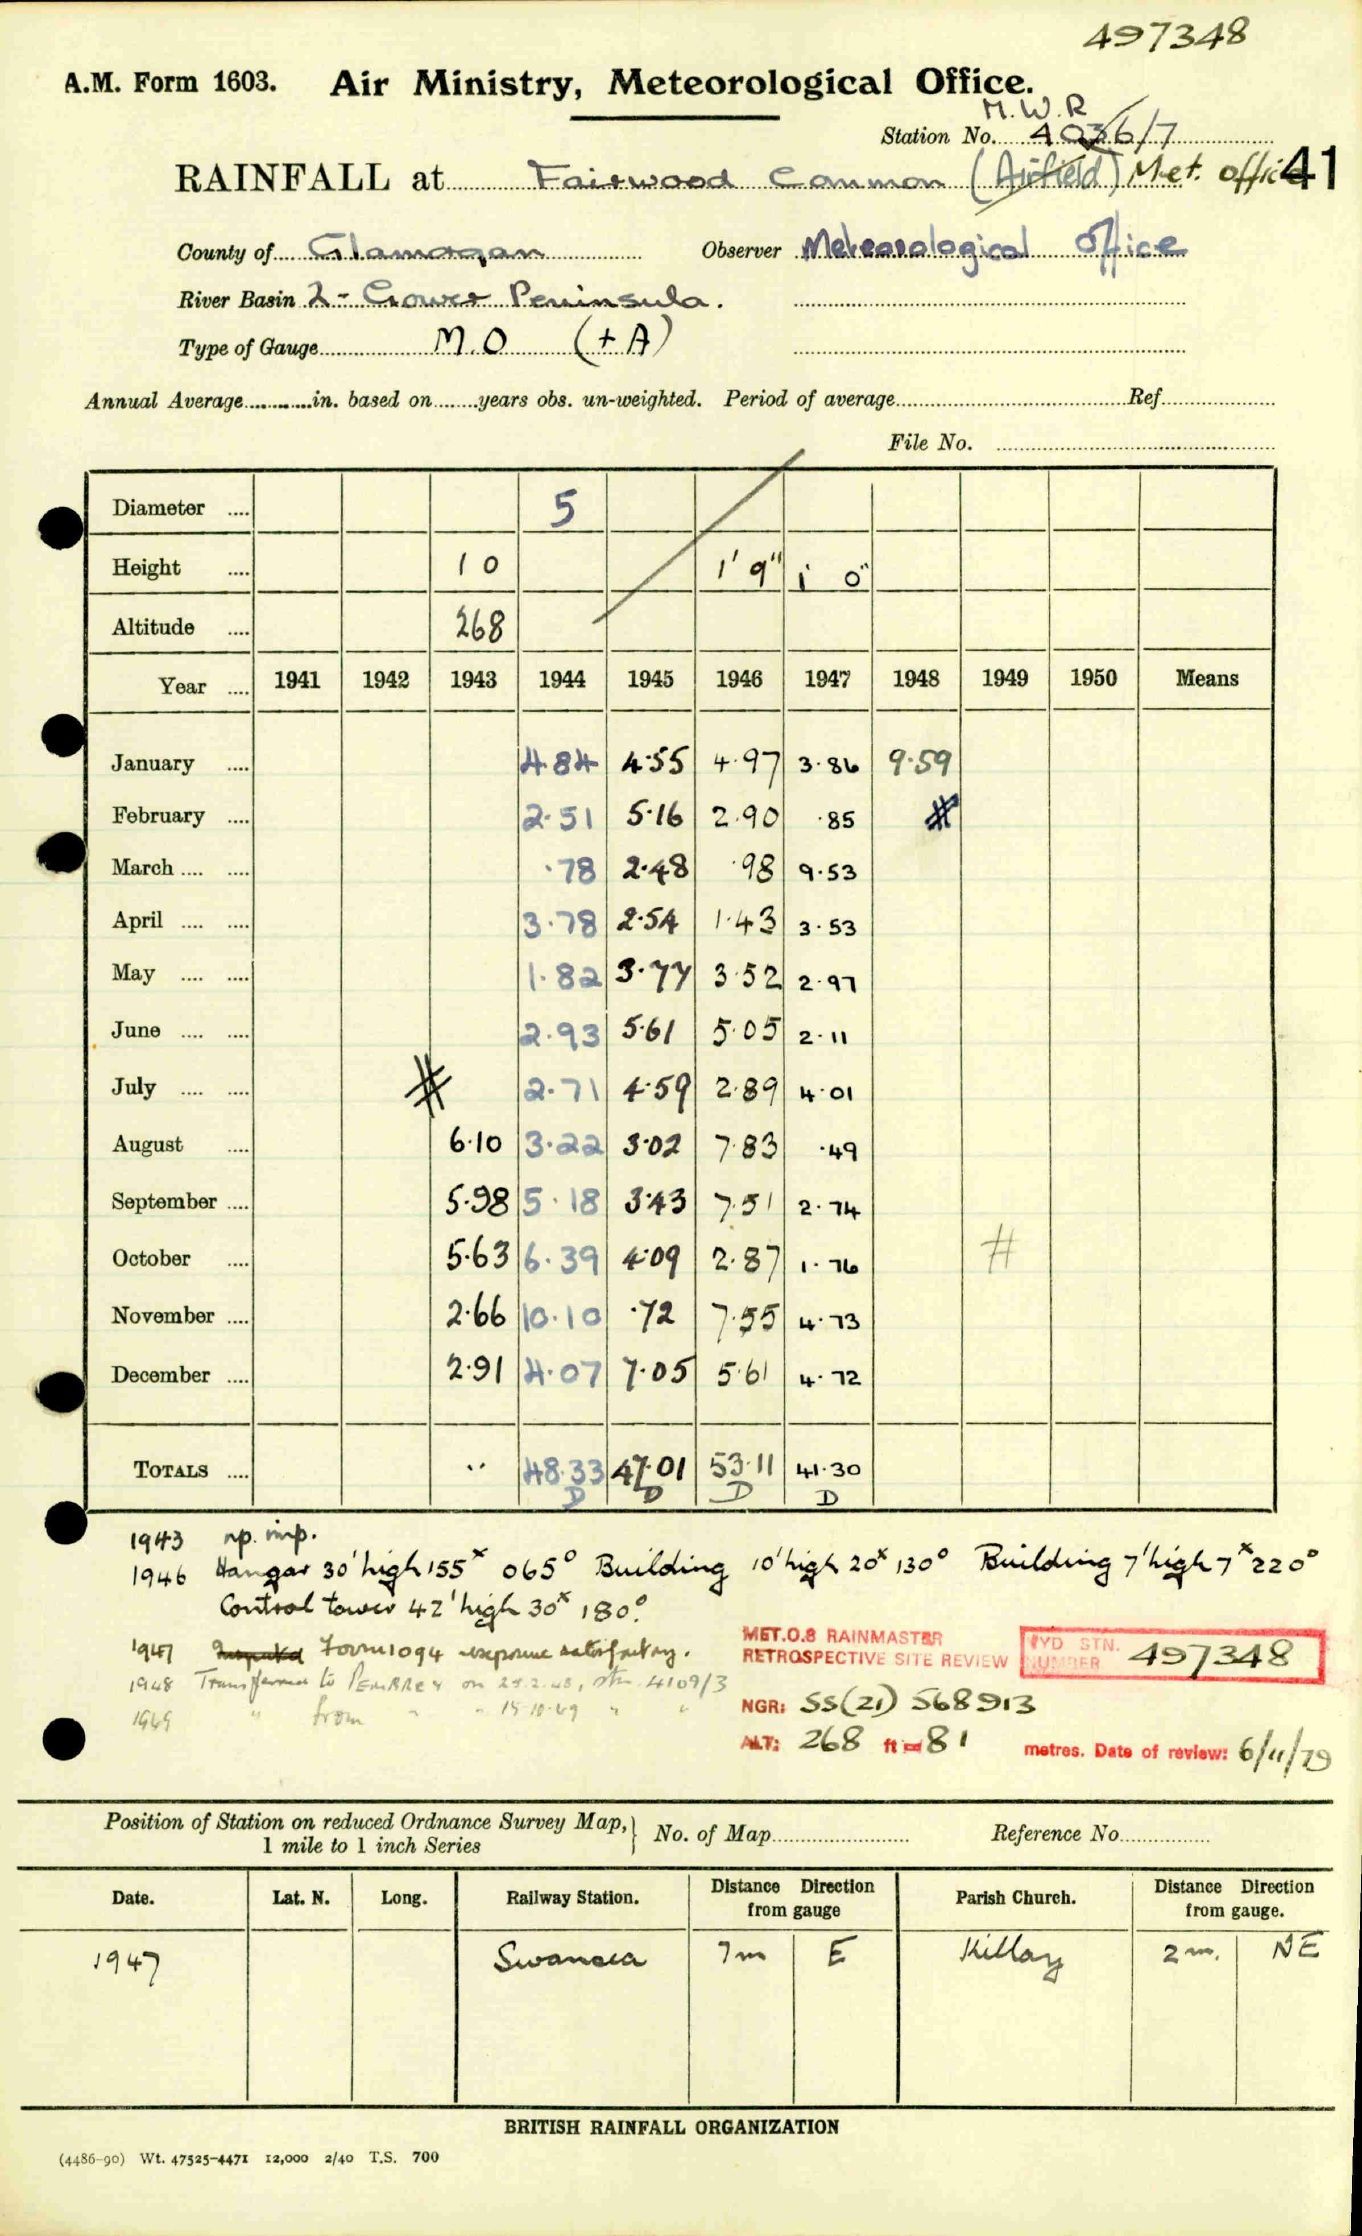 497348
A.M. Form 1603. Air Ministry, Meteorological Office.
M.W.R
Station No. 4036/7
RAINFALL at Fairwood Common (Airfield) Met. office 41
County of Glamorgan Observer Meteorological Office
River Basin 2 - Gower Peninsula.
Type of Gauge M.O (+A)
Annual Average in. based on years obs. un-weighted. Period of average Ref
File No.
Diameter 5
Height 10 1' 9" 1' 0"
Altitude 268
Year 1941 1942 1943 1944 1945 1946 1947 1948 1949 1950 Means
January 4.84 4.55 4.97 3.86 9.59
February 2.51 5.16 2.90 .85 #
March .78 2.48 .98 9.53
April 3.78 2.54 1.43 3.53
May 1.82 3.77 3.52 2.97
June 2.93 5.61 5.05 2.11
July # 2.71 4.59 2.89 4.01
August 6.10 3.22 3.02 7.83 .49
September 5.98 5.18 3.43 7.51 2.74
October 5.63 6.39 4.09 2.87 1.76 #
November 2.66 10.10 .72 7.55 4.73
December 2.91 4.07 7.05 5.61 4.72
TOTALS .. 48.33 47.01 53.11 41.30
D D D D
1943 np. imp.
1946 Hangar 30' high 155x 065° Building 10' high 20x 130° Building 7' high 7x 220°
Control tower 42' high 30x 180°.
1947 Form 1094 exposure satisfactory.
1948 Transferred to PEMBREY on 2.48, stn. 4109/3
1949 " from " " 15.10.49 " "
MET.O.8 RAINMASTER
RETROSPECTIVE SITE REVIEW
HYD STN.
NUMBER 497348
NGR: SS(21) 568913
ALT: 268 ft = 81 metres. Date of review: 6/11/79
Position of Station on reduced Ordnance Survey Map,
1 mile to 1 inch Series
No. of Map Reference No
Date. Lat. N. Long. Railway Station. Distance Direction from gauge Parish Church. Distance Direction from gauge.
1947 Swansea 7m E Killay 2m. NE
BRITISH RAINFALL ORGANIZATION
(4486-90) Wt. 47525-4471 12,000 2/40 T.S. 700